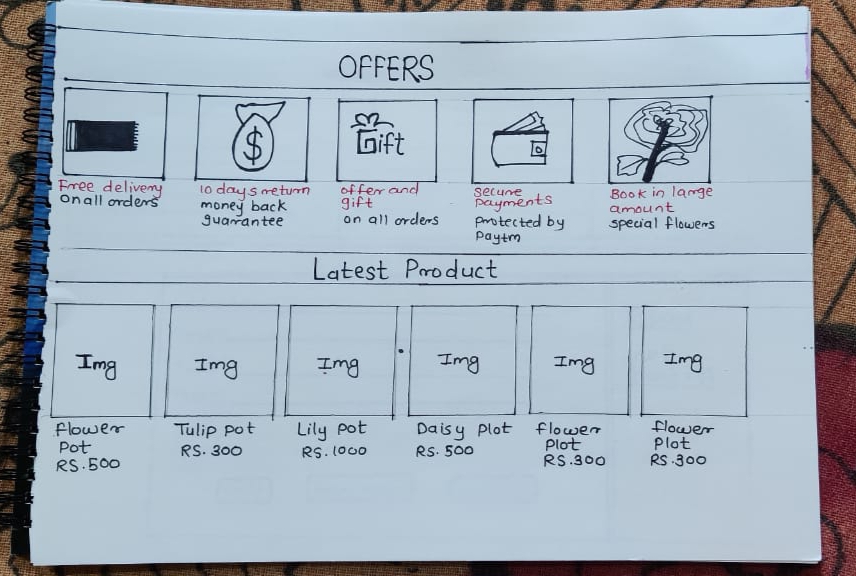 OFFERS
$
Gift
Free delivery
On all orders
10 days return
money back
guarantee
offer and
gift
on all orders
secure
payments
protected by
Paytm
Book in large
amount
special flowers
Latest Product
Img
Img
Img
Img
Img
Img
flower
Pot
RS.500
Tulip pot
RS.300
Lily pot
RS.1000
Daisy Plot
RS.500
flower
Plot
RS.300
flower
Plot
RS.300